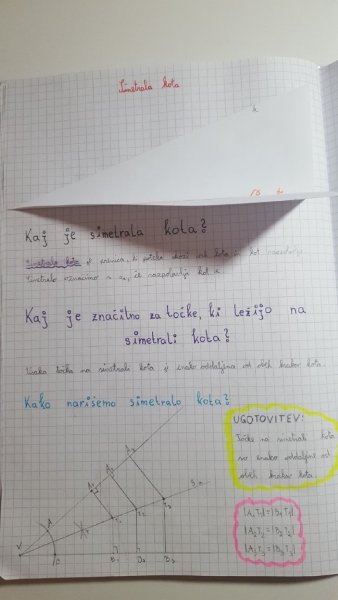 Simetrala kota
Kaj je simetrala kota?
Simetrala kota je premica, ki poteka skozi vrh kota in kot razpolovi.
Simetralo označimo s sα, če razpolavlja kot α.
Kaj je značilno za točke, ki ležijo na
simetrali kota?
Vsaka točka na simetrali kota je enako oddaljena od obeh krakov kota.
Kako narišemo simetralo kota?
UGOTOVITEV:
Točke na simetrali kota
so enako oddaljene od
obeh krakov kota.
|A₁T₁|=|B₁T₁|
|A₂T₂|=|B₂T₂|
|A₃T₃|=|B₃T₃|
A₃
A₂
A₁
A
T₁
T₂
T₃
V
B₁
B₂
B₃